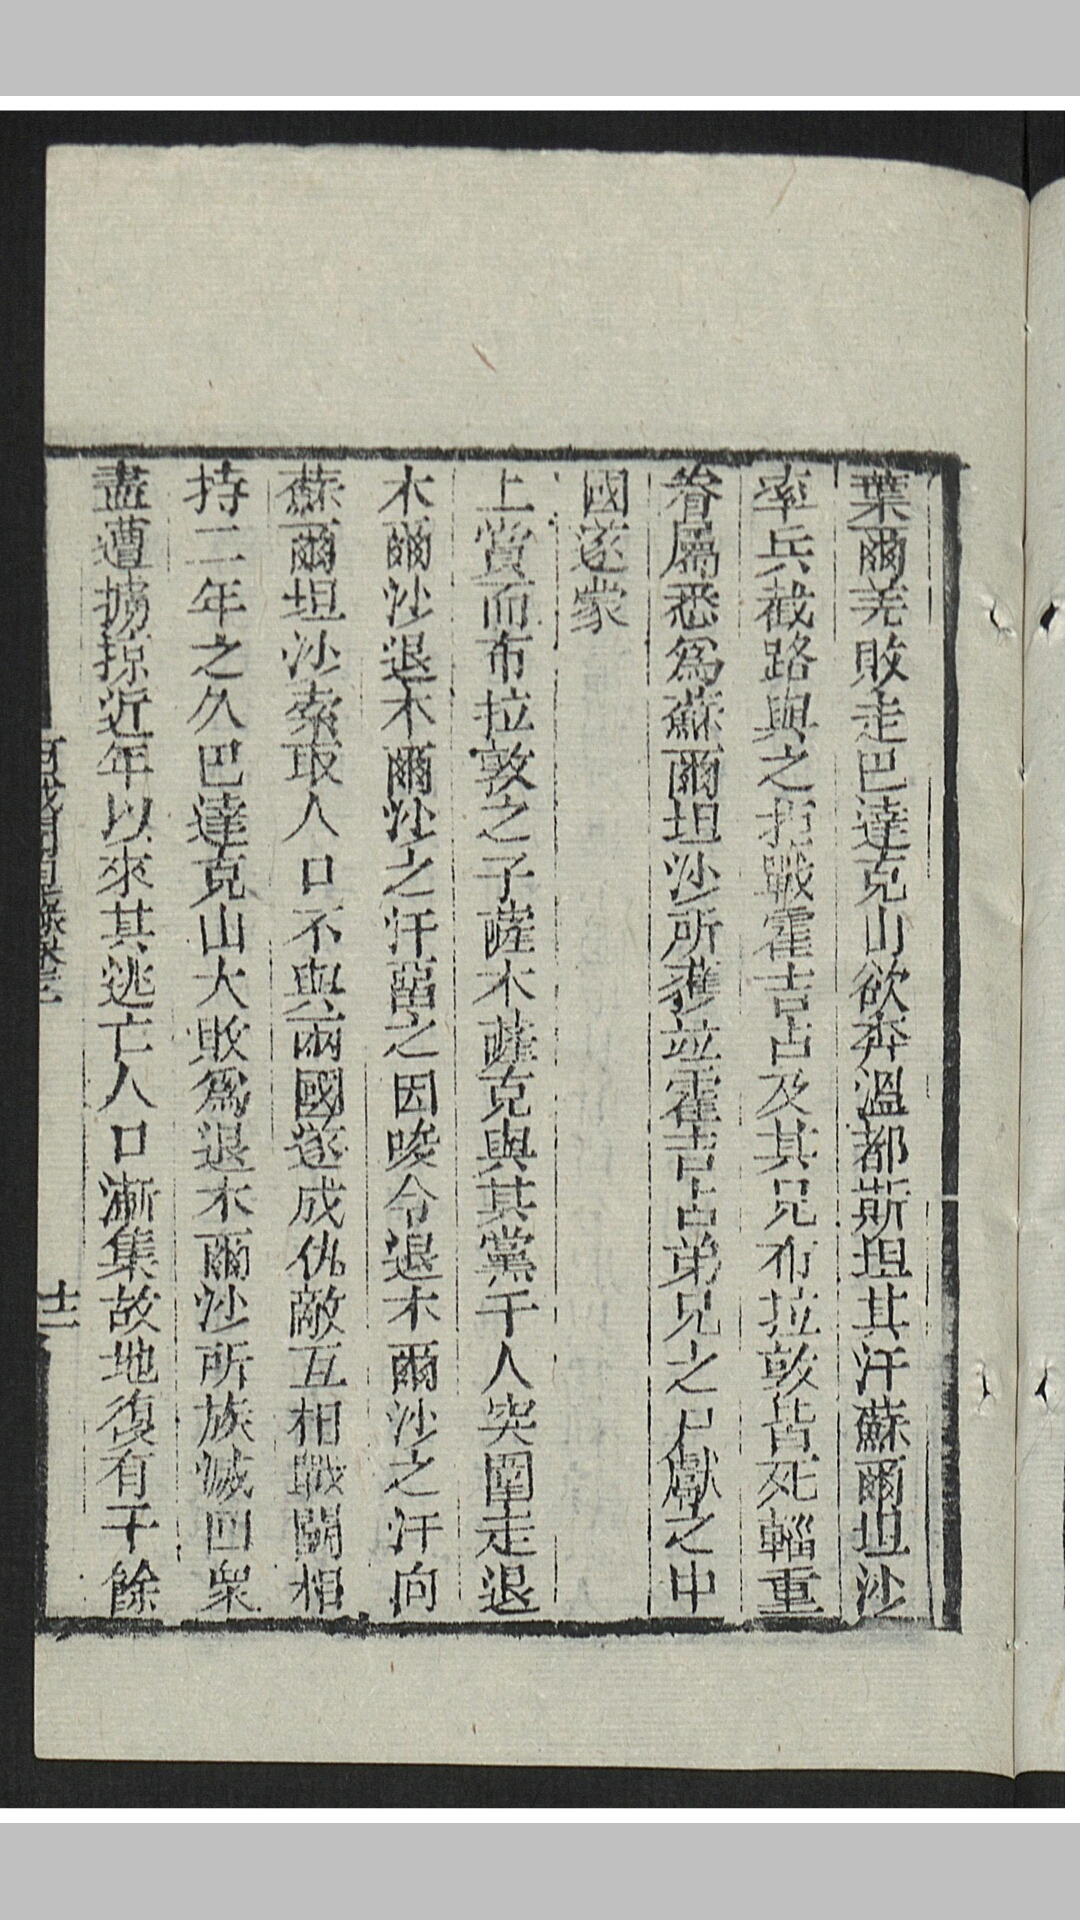 葉爾羌敗走巴達克山欲奔溫都斯坦其汗蘇爾坦沙
率兵截路與之拒戰霍吉占及其兄布拉敦皆死輜重
眷屬悉爲蘇爾坦沙所獲竝霍吉占弟兄之尸獻之中
國遂蒙
上賞而布拉敦之子薩木薩克與其黨千人突圍走退
木爾沙退木爾沙之汗畱之因唆令退木爾沙之汗向
蘇爾坦沙索取人口不與兩國遂成仇敵互相戰鬭相
持二年之久巴達克山大敗爲退木爾沙所族滅回衆
盡遭擄掠近年以來其逃亡人口漸集故地復有千餘
西域聞見錄卷三
十二